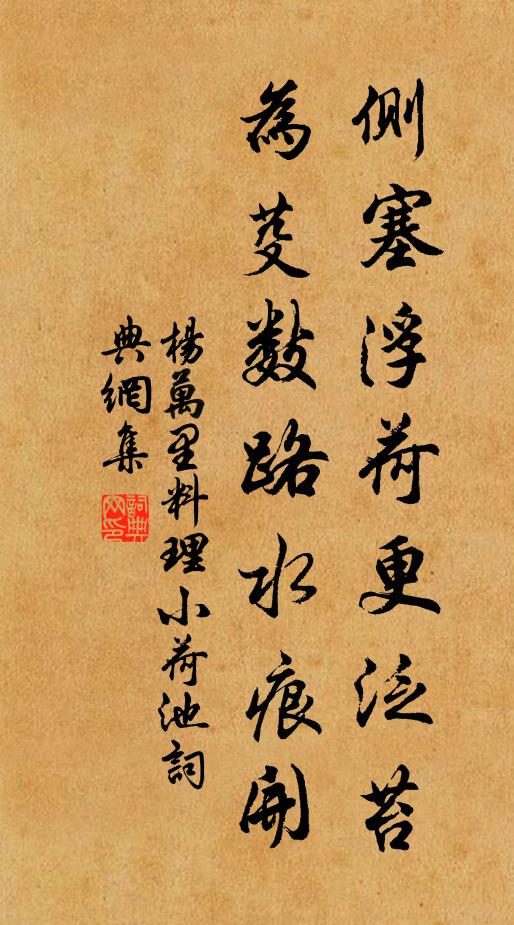 側塞浮荷更泛苔
為芟數路水痕開
楊萬里料理小荷池詞
典網集
詞典
網印